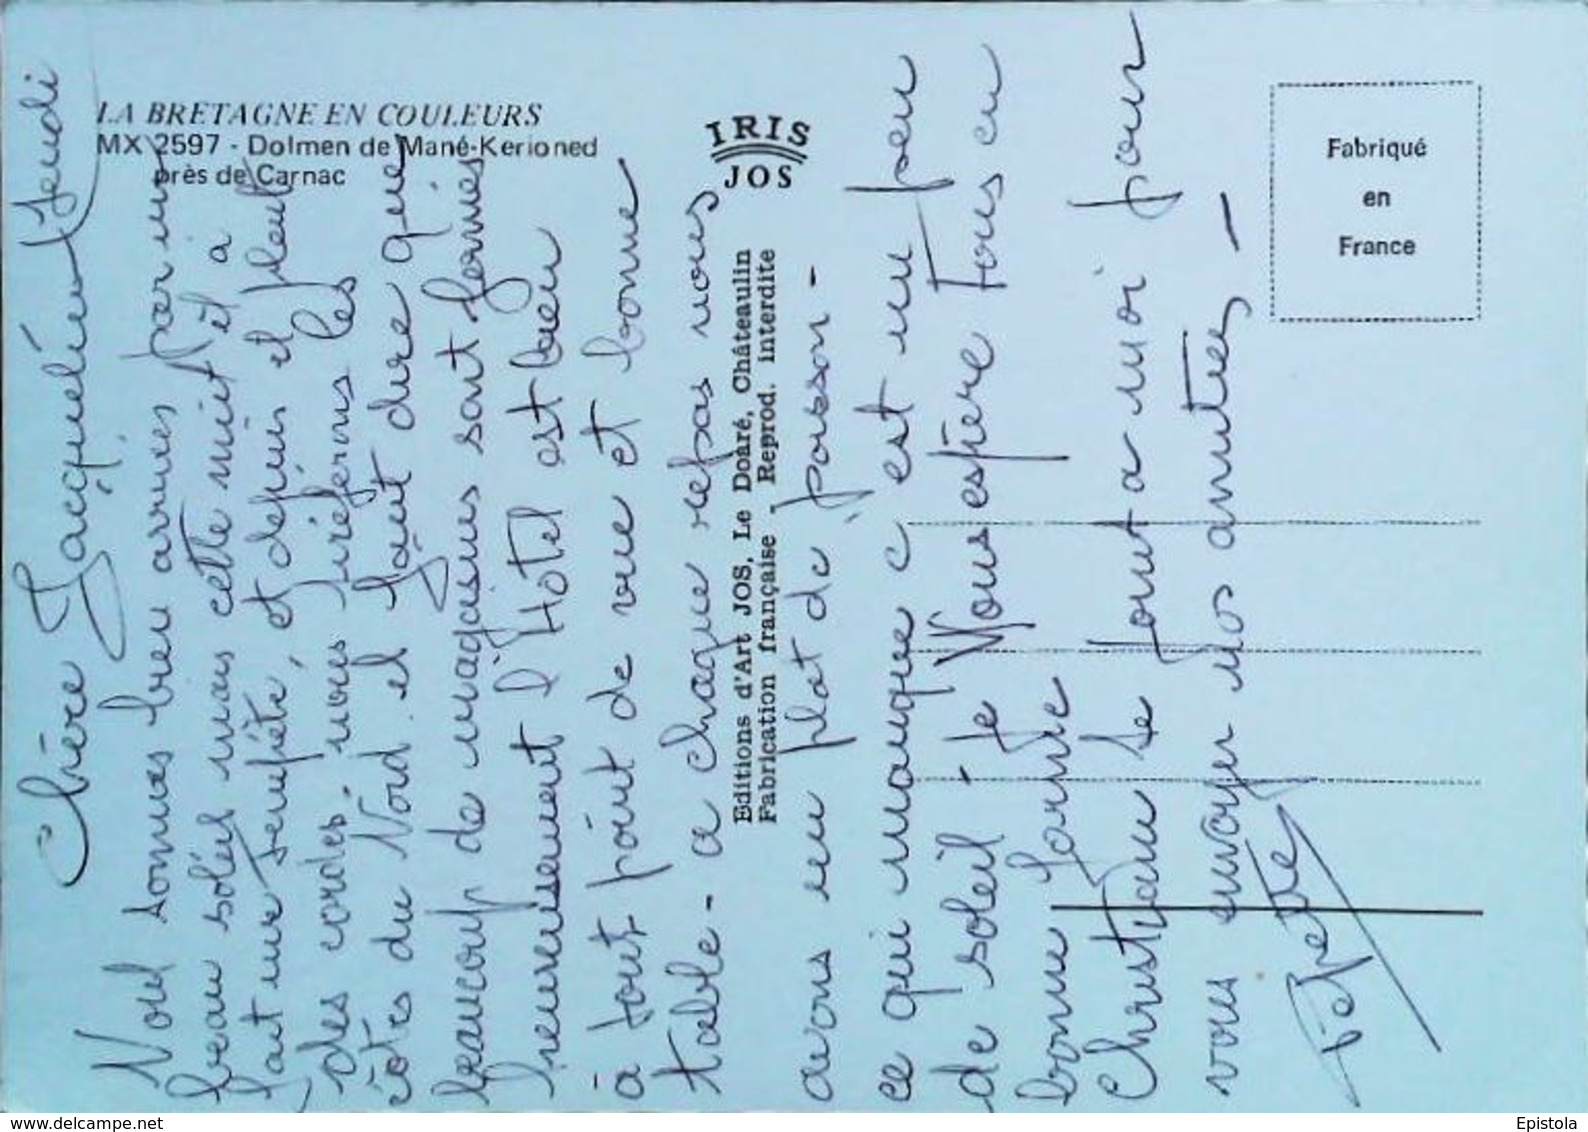 LA BRETAGNE EN COULEURS
MX 2597 - Dolmen de Mané-Kerioned
près de Carnac
IRIS
JOS
Editions d'Art JOS, Le Doaré, Châteaulin
Fabrication française - Reprod. interdite
Fabriqué
en
France
Jeudi
Chère Jacqueline
Nous sommes bien arrivés par un
beau soleil mais cette nuit il a
fait une tempête, et depuis il pleut
des cordes. nous préférons les
côtes du Nord. il faut dire que
beaucoup de magasins sont fermés
heureusement l'Hôtel est bien
à tout point de vue et bonne
table - a chaque repas nous
avons un plat de poisson -
ce qui manque c est un peu
de soleil. Je Vous espère tous en
bonne forme
Christian se joint a moi pour
vous envoyer nos amitiés -
delcampe.net
Epistola